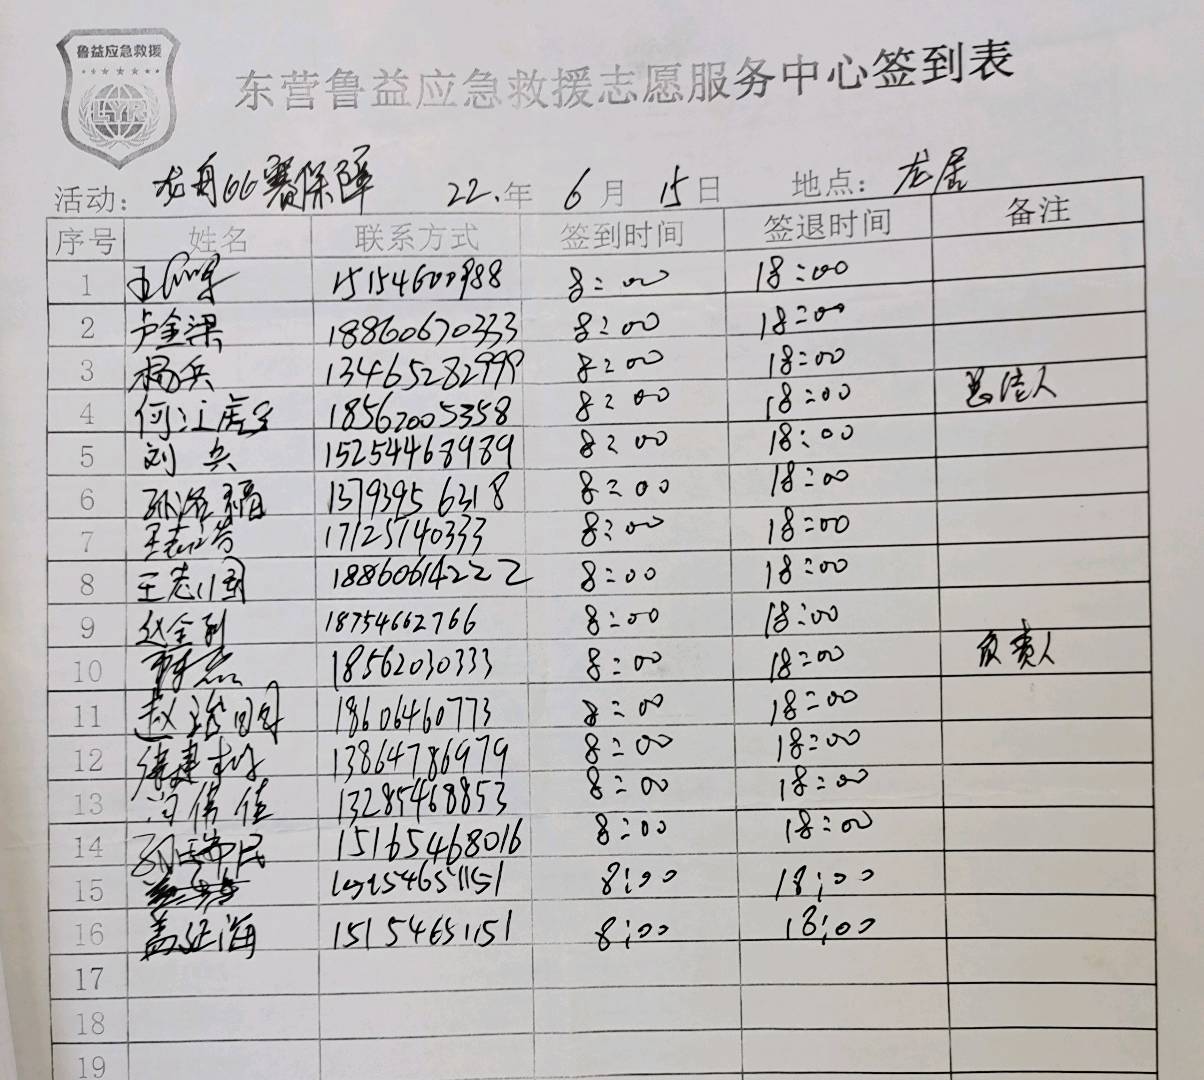 鲁益应急救援
LYR
东营鲁益应急救援志愿服务中心签到表
活动: 龙舟66赛保障 22.年 6月 15日 地点: 龙居
序号 姓名 联系方式 签到时间 签退时间 备注
1 15154600988 8:00 18:00
2 卢金梁 18860670333 8:00 18:00
3 杨兵 13465282999 8:00 18:00
4 18562005358 8:00 18:00
5 刘兵 15254468989 8:00 18:00
6 13793956318 8:00 18:00
7 17125140333 8:00 18:00
8 王志国 18860614222 8:00 18:00
9 赵金利 18754662766 8:00 18:00
10 18562030333 8:00 18:00 负责人
11 18606460773 8:00 18:00
12 13864786979 8:00 18:00
13 13285468853 8:00 18:00
14 15165468016 8:00 18:00
15 8:00 18:00
16 盖延海 15154651151 8:00 18:00
17
18
19